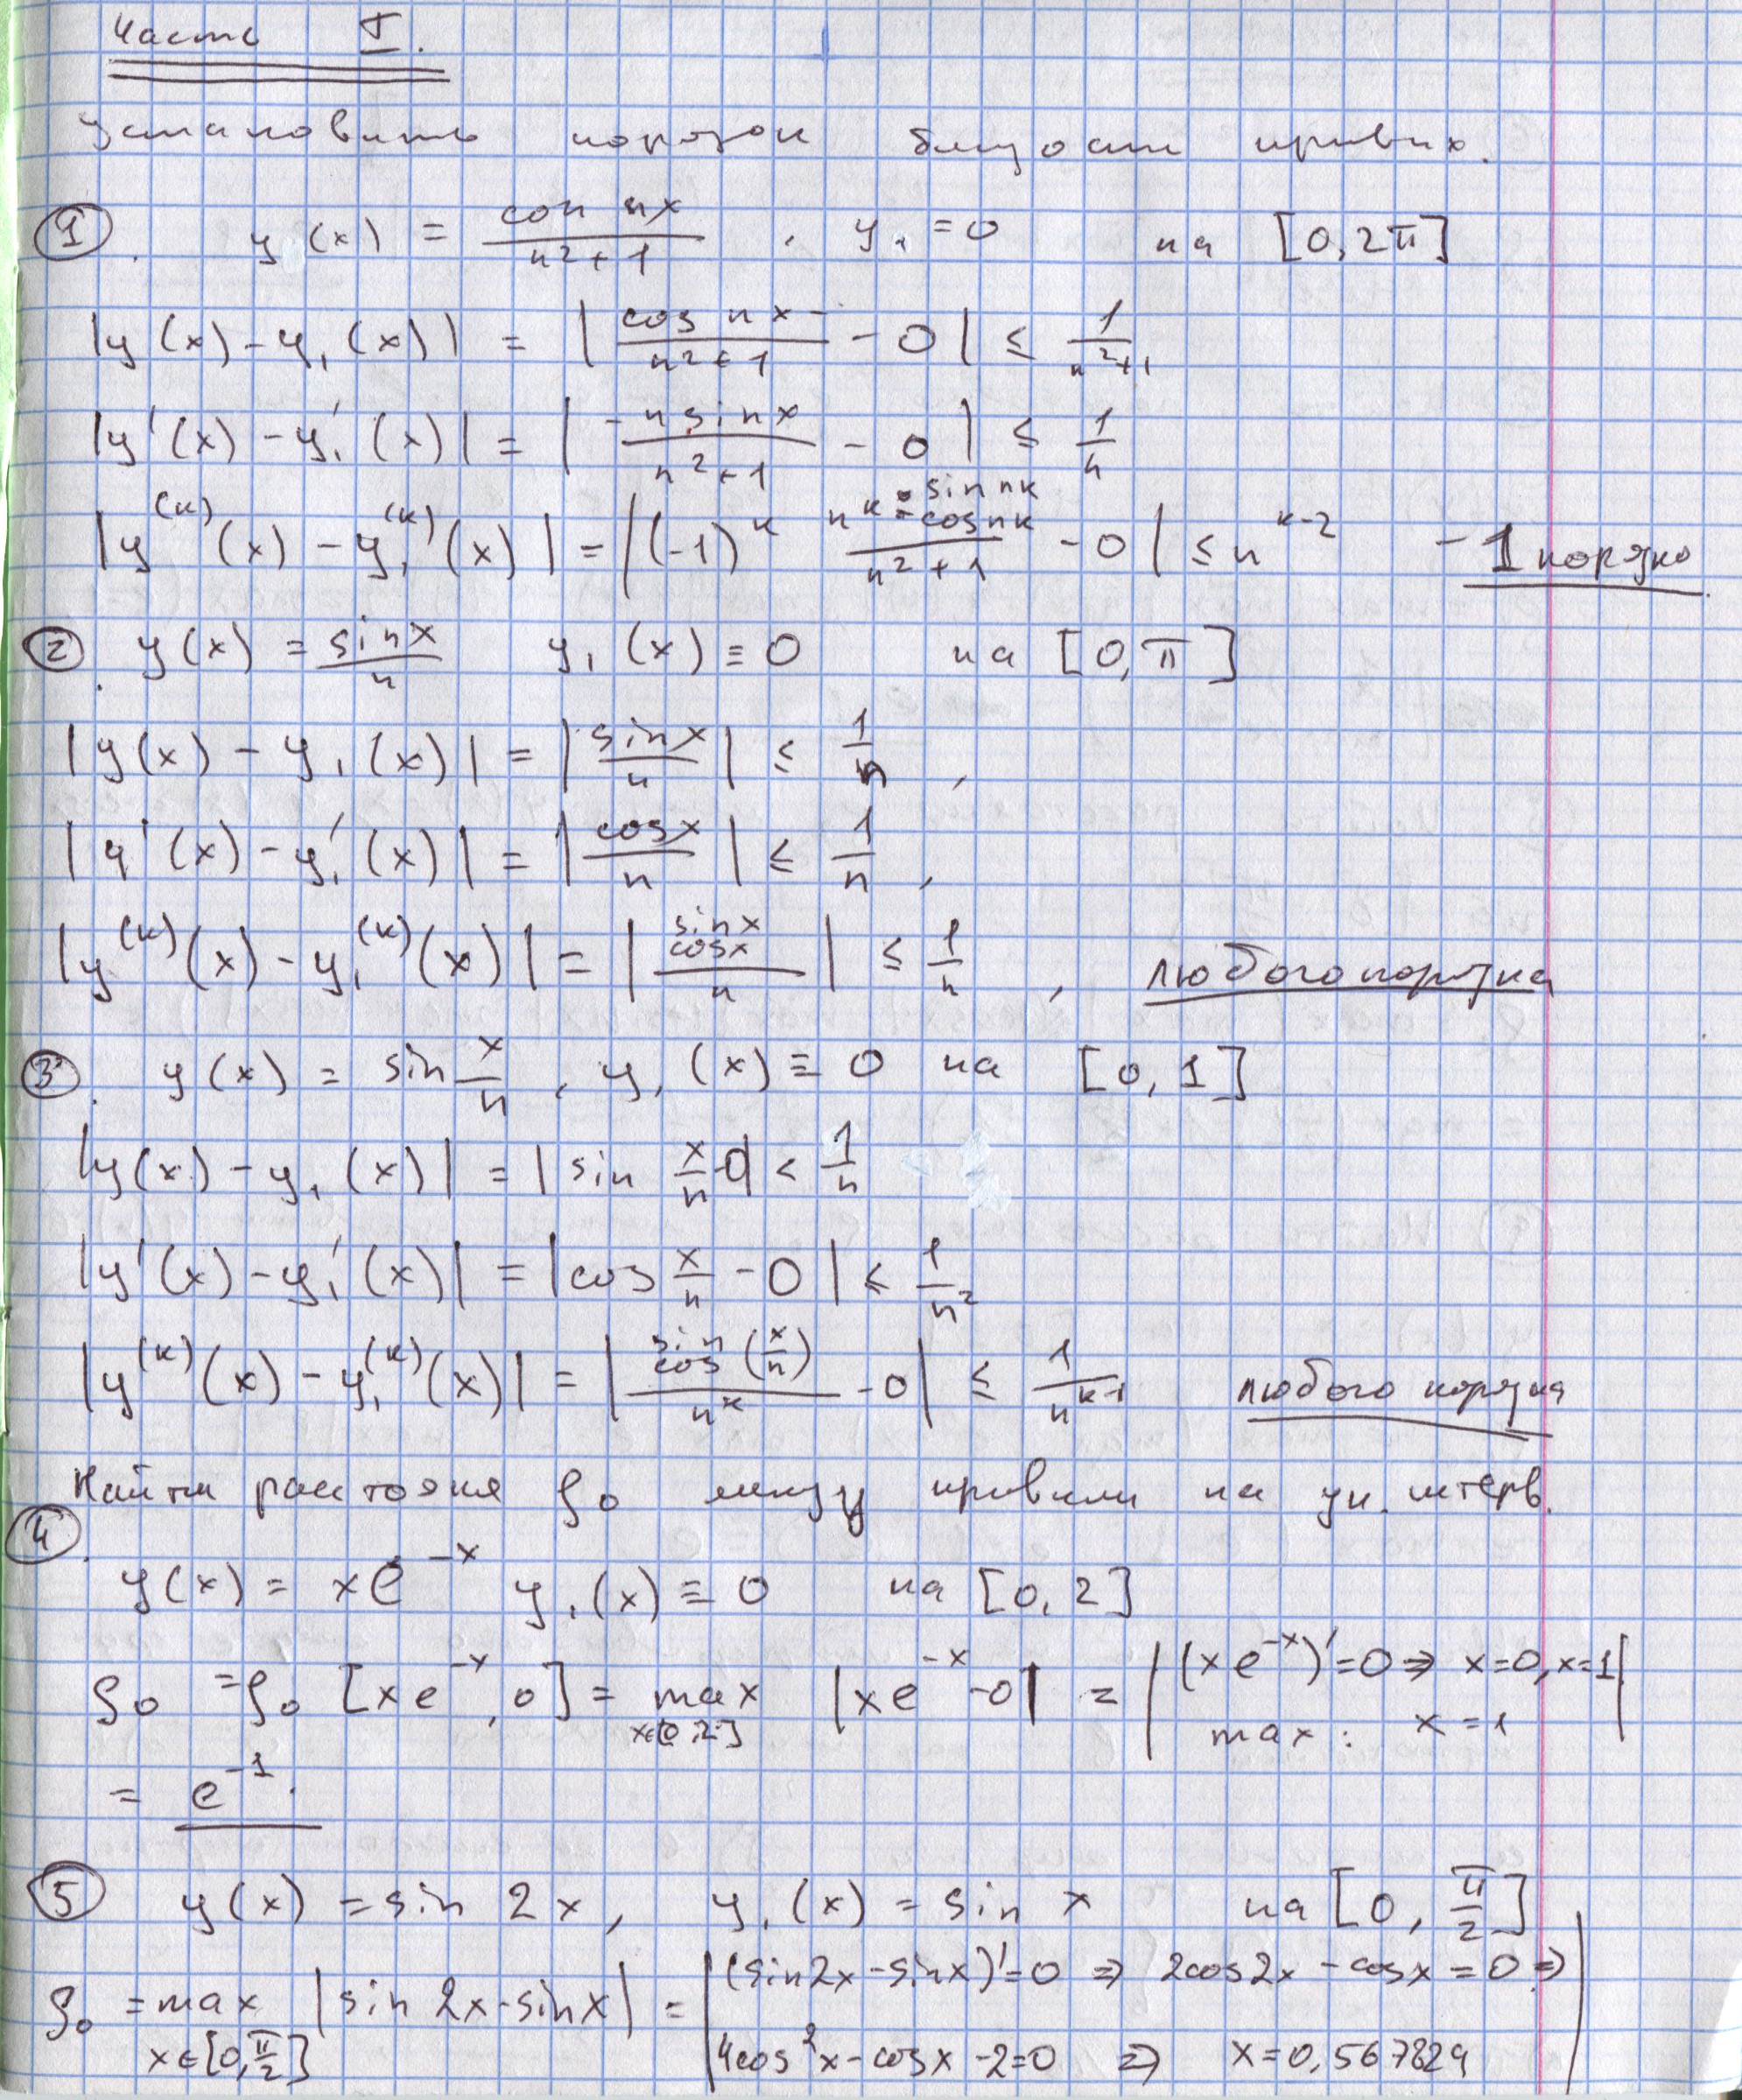 Часть I.
Установить порядок близости кривых.
① . y(x) = cos nx / (n² + 1) , y₁ = 0 на [0, 2π]
|y(x) - y₁(x)| = |cos nx / (n² + 1) - 0| ≤ 1 / (n² + 1)
|y'(x) - y₁'(x)| = |-n sin nx / (n² + 1) - 0| ≤ 1/n
|y⁽ᵏ⁾(x) - y₁⁽ᵏ⁾(x)| = |(-1)ᵏ nᵏ (sin nk / cos nk) / (n² + 1) - 0| ≤ nᵏ⁻² - 1 порядко
② . y(x) = sin x / n y₁(x) ≡ 0 на [0, π]
|y(x) - y₁(x)| = |sin x / n| ≤ 1/n ,
|y'(x) - y₁'(x)| = |cos x / n| ≤ 1/n ,
|y⁽ᵏ⁾(x) - y₁⁽ᵏ⁾(x)| = |(sin x / cos x) / n| ≤ 1/n , любого порядка
③ . y(x) = sin x/n , y₁(x) ≡ 0 на [0, 1]
|y(x) - y₁(x)| = |sin x/n - 0| < 1/n
|y'(x) - y₁'(x)| = |cos x/n - 0| ≤ 1/n²
|y⁽ᵏ⁾(x) - y₁⁽ᵏ⁾(x)| = |(sin / cos)(x/n) / nᵏ - 0| ≤ 1/nᵏ⁺¹ любого порядка
Найти расстояние ρ₀ между кривыми на ук. интерв.
④ . y(x) = x e⁻ˣ y₁(x) ≡ 0 на [0, 2]
ρ₀ = ρ₀ [x e⁻ˣ, 0] = max x∈[0,2] |x e⁻ˣ - 0| = |(x e⁻ˣ)' = 0 ⇒ x=0, x=1
max : x = 1|
= e⁻¹.
⑤ y(x) = sin 2x , y₁(x) = sin x на [0, π/2]
ρ₀ = max x∈[0, π/2] |sin 2x - sin x| = |(sin 2x - sin x)' = 0 ⇒ 2cos 2x - cos x = 0 ⇒
4cos² x - cos x - 2 = 0 ⇒ x = 0,567829|